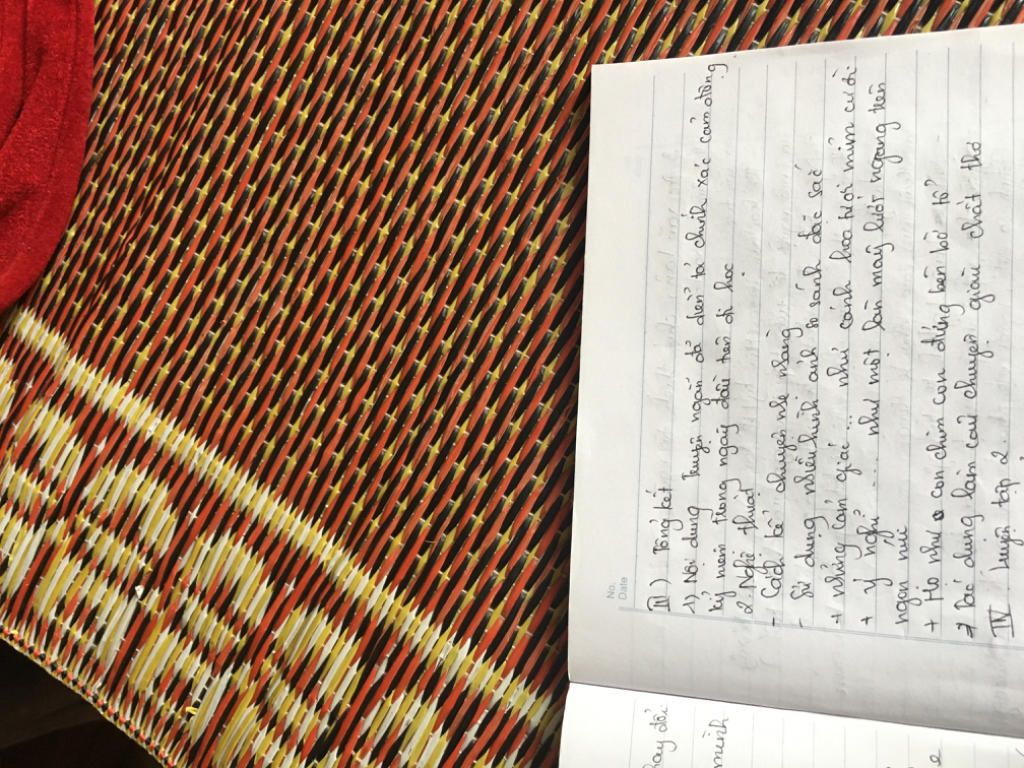 No.
Date
III) Tổng kết
1) Nội dung Truyện ngắn đã diễn tả chính xác cảm động
kỷ niệm trong ngày đầu tiên đi học
2. Nghệ thuật
- Cách kể chuyện nhẹ nhàng
- Sử dụng nhiều hình ảnh so sánh đặc sắc
+ những cảm giác ... như cánh hoa tươi mỉm cười
+ ý nghĩ ... như một làn mây lướt ngang trên
ngọn núi
+ Họ như con chim con đứng bên bờ tổ
=> Tác dụng làm câu chuyện giàu chất thơ
IV Luyện tập 2.
hay đổi
mình